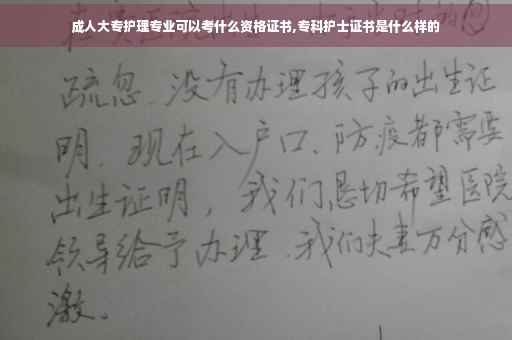 成人大专护理专业可以考什么资格证书,专科护士证书是什么样的
疏忽、没有办理孩子的出生证
明、现在入户口、防疫都需要
出生证明，我们恳切希望医院
领导给予办理、我们夫妻万分感
激。